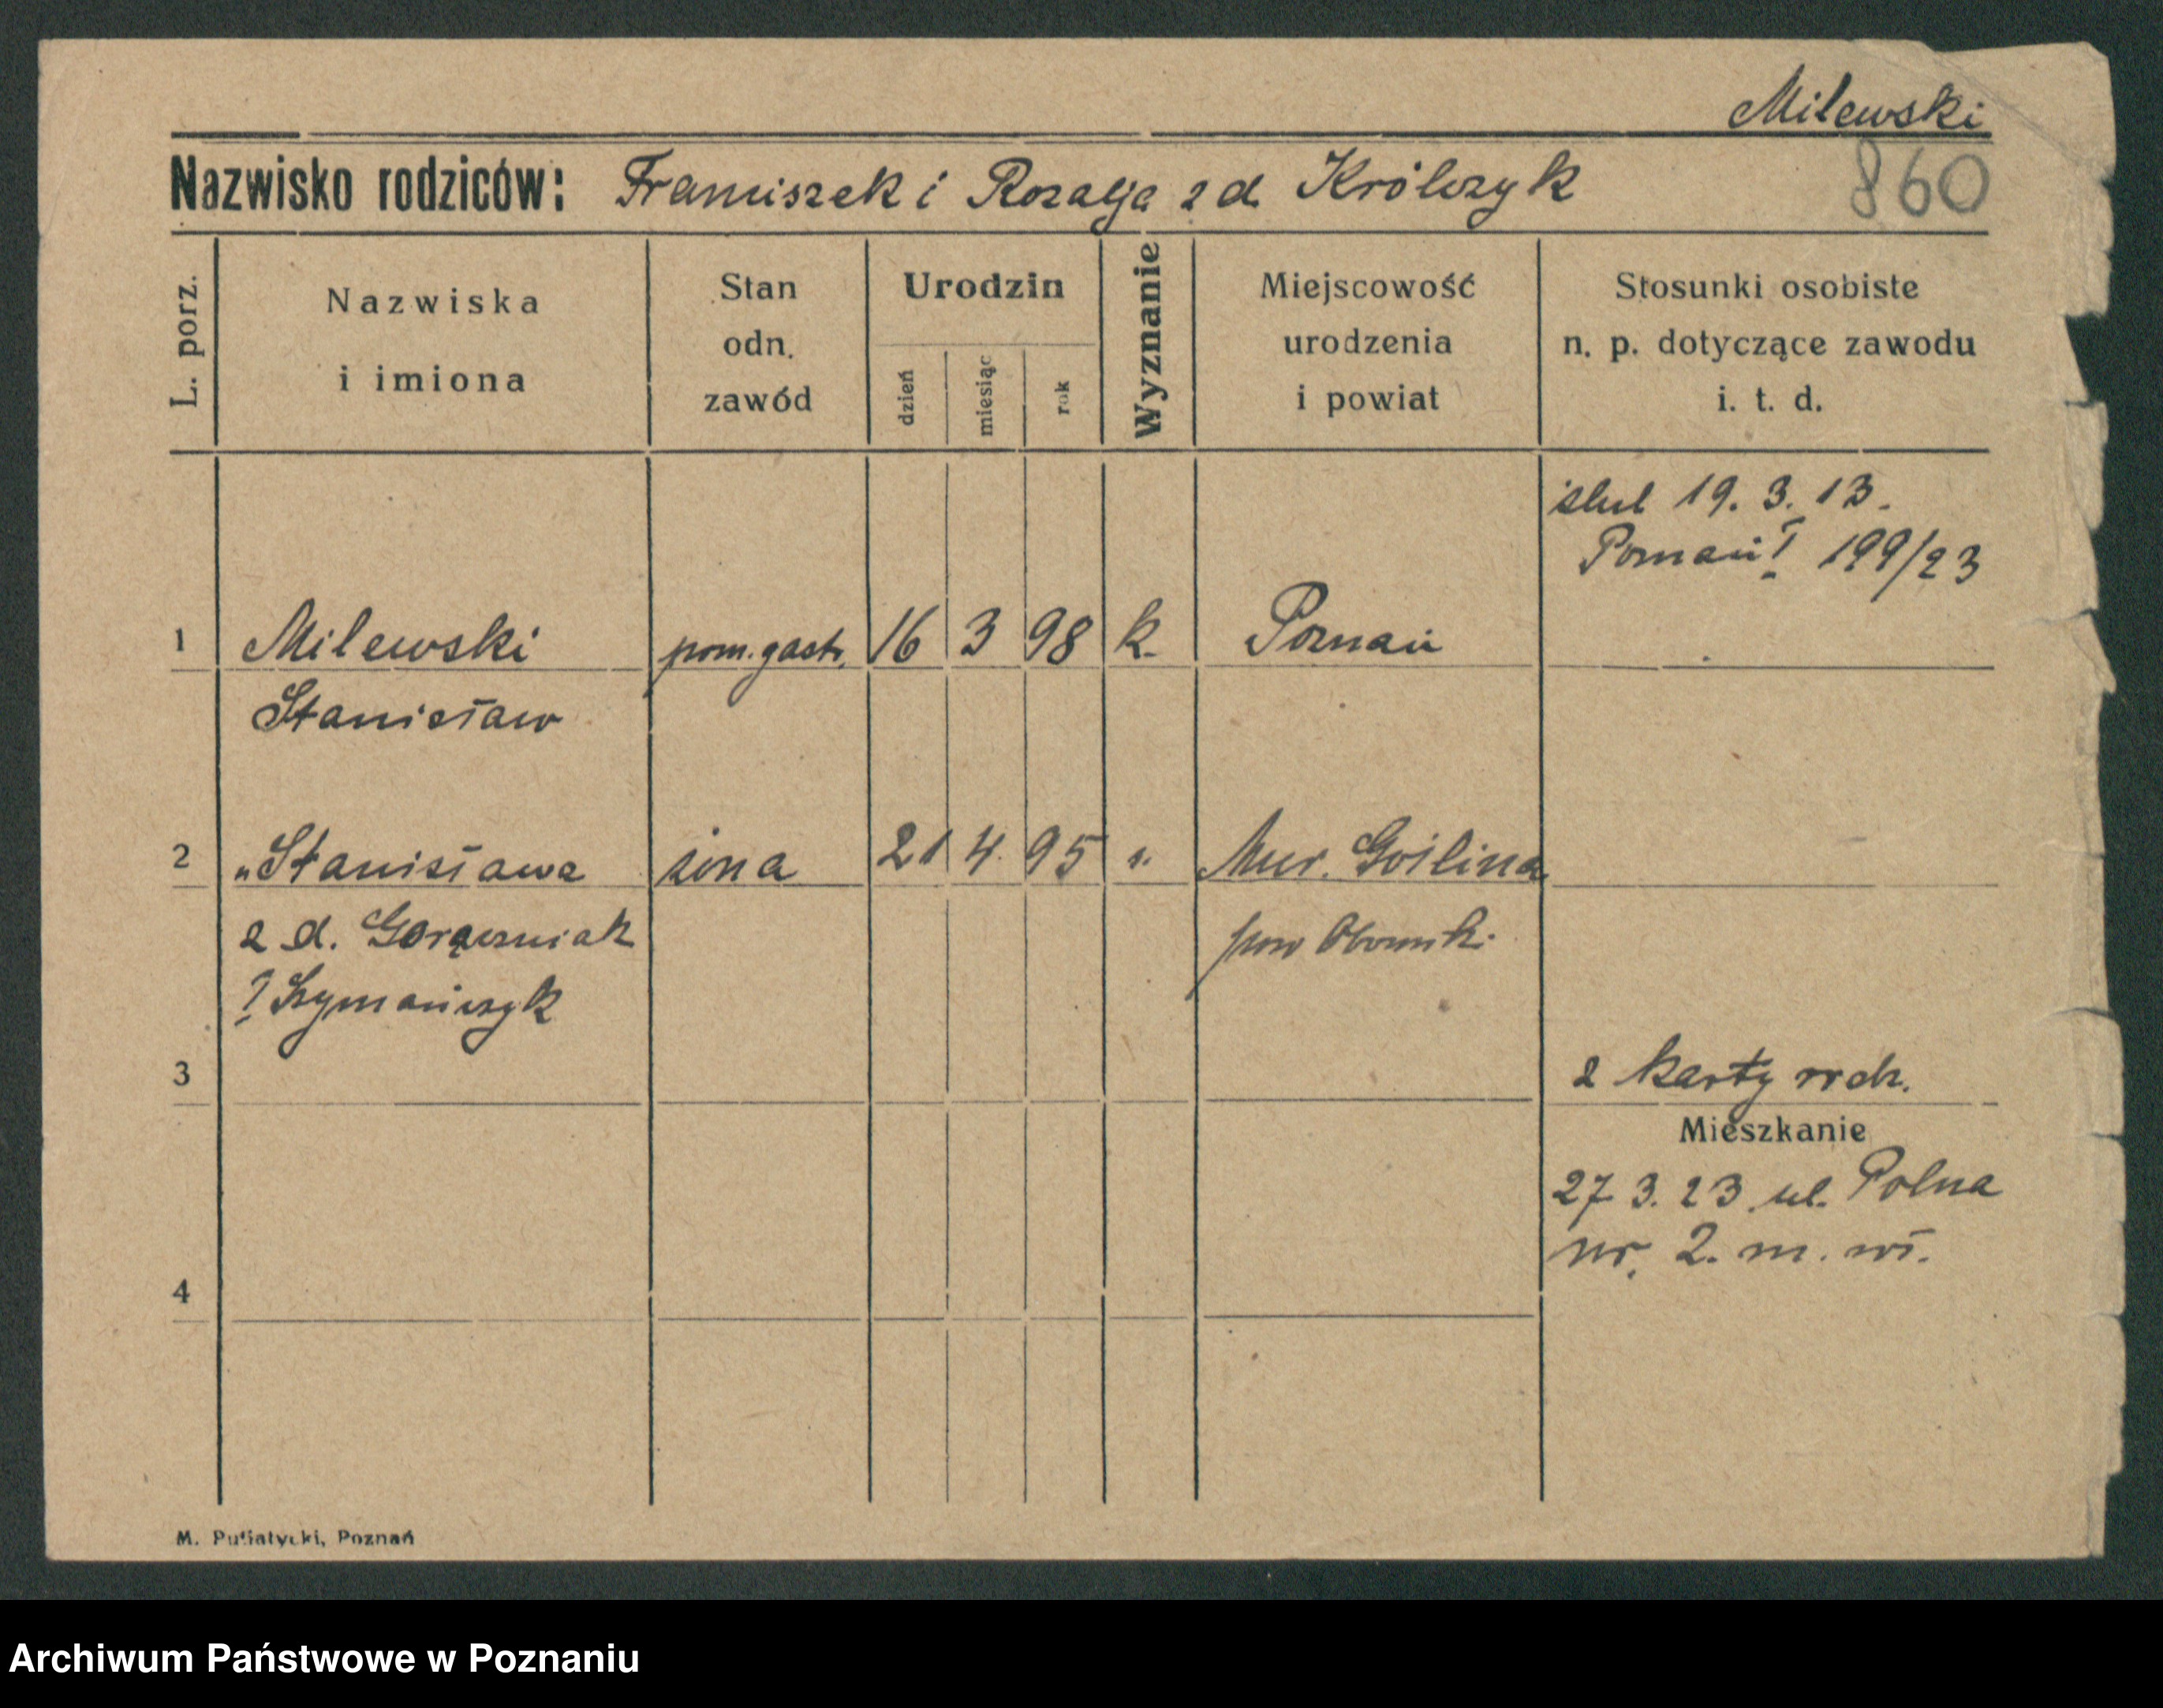 Milewski
Nazwisko rodziców: Franciszek i Rozalja z d. Królczyk
860
L. porz.
Nazwiska i imiona
Stan odn. zawód
Urodzin
dzień miesiąc rok
Wyznanie
Miejscowość urodzenia i powiat
Stosunki osobiste n. p. dotyczące zawodu i. t. d.
ślub 19. 3. 13.
Poznań I 199/23
1 Milewski pom. gastr. 16 3 98 k. Poznań
Stanisław
2 " Stanisława żona 21 4. 95 " Mur. Goślina
z d. Gorączniak pow Obornik.
? Szymańczyk
3
2 karty rodz.
Mieszkanie
27 3. 23. ul. Polna
nr. 2. m. wł.
4
M. Putiatycki, Poznań
Archiwum Państwowe w Poznaniu